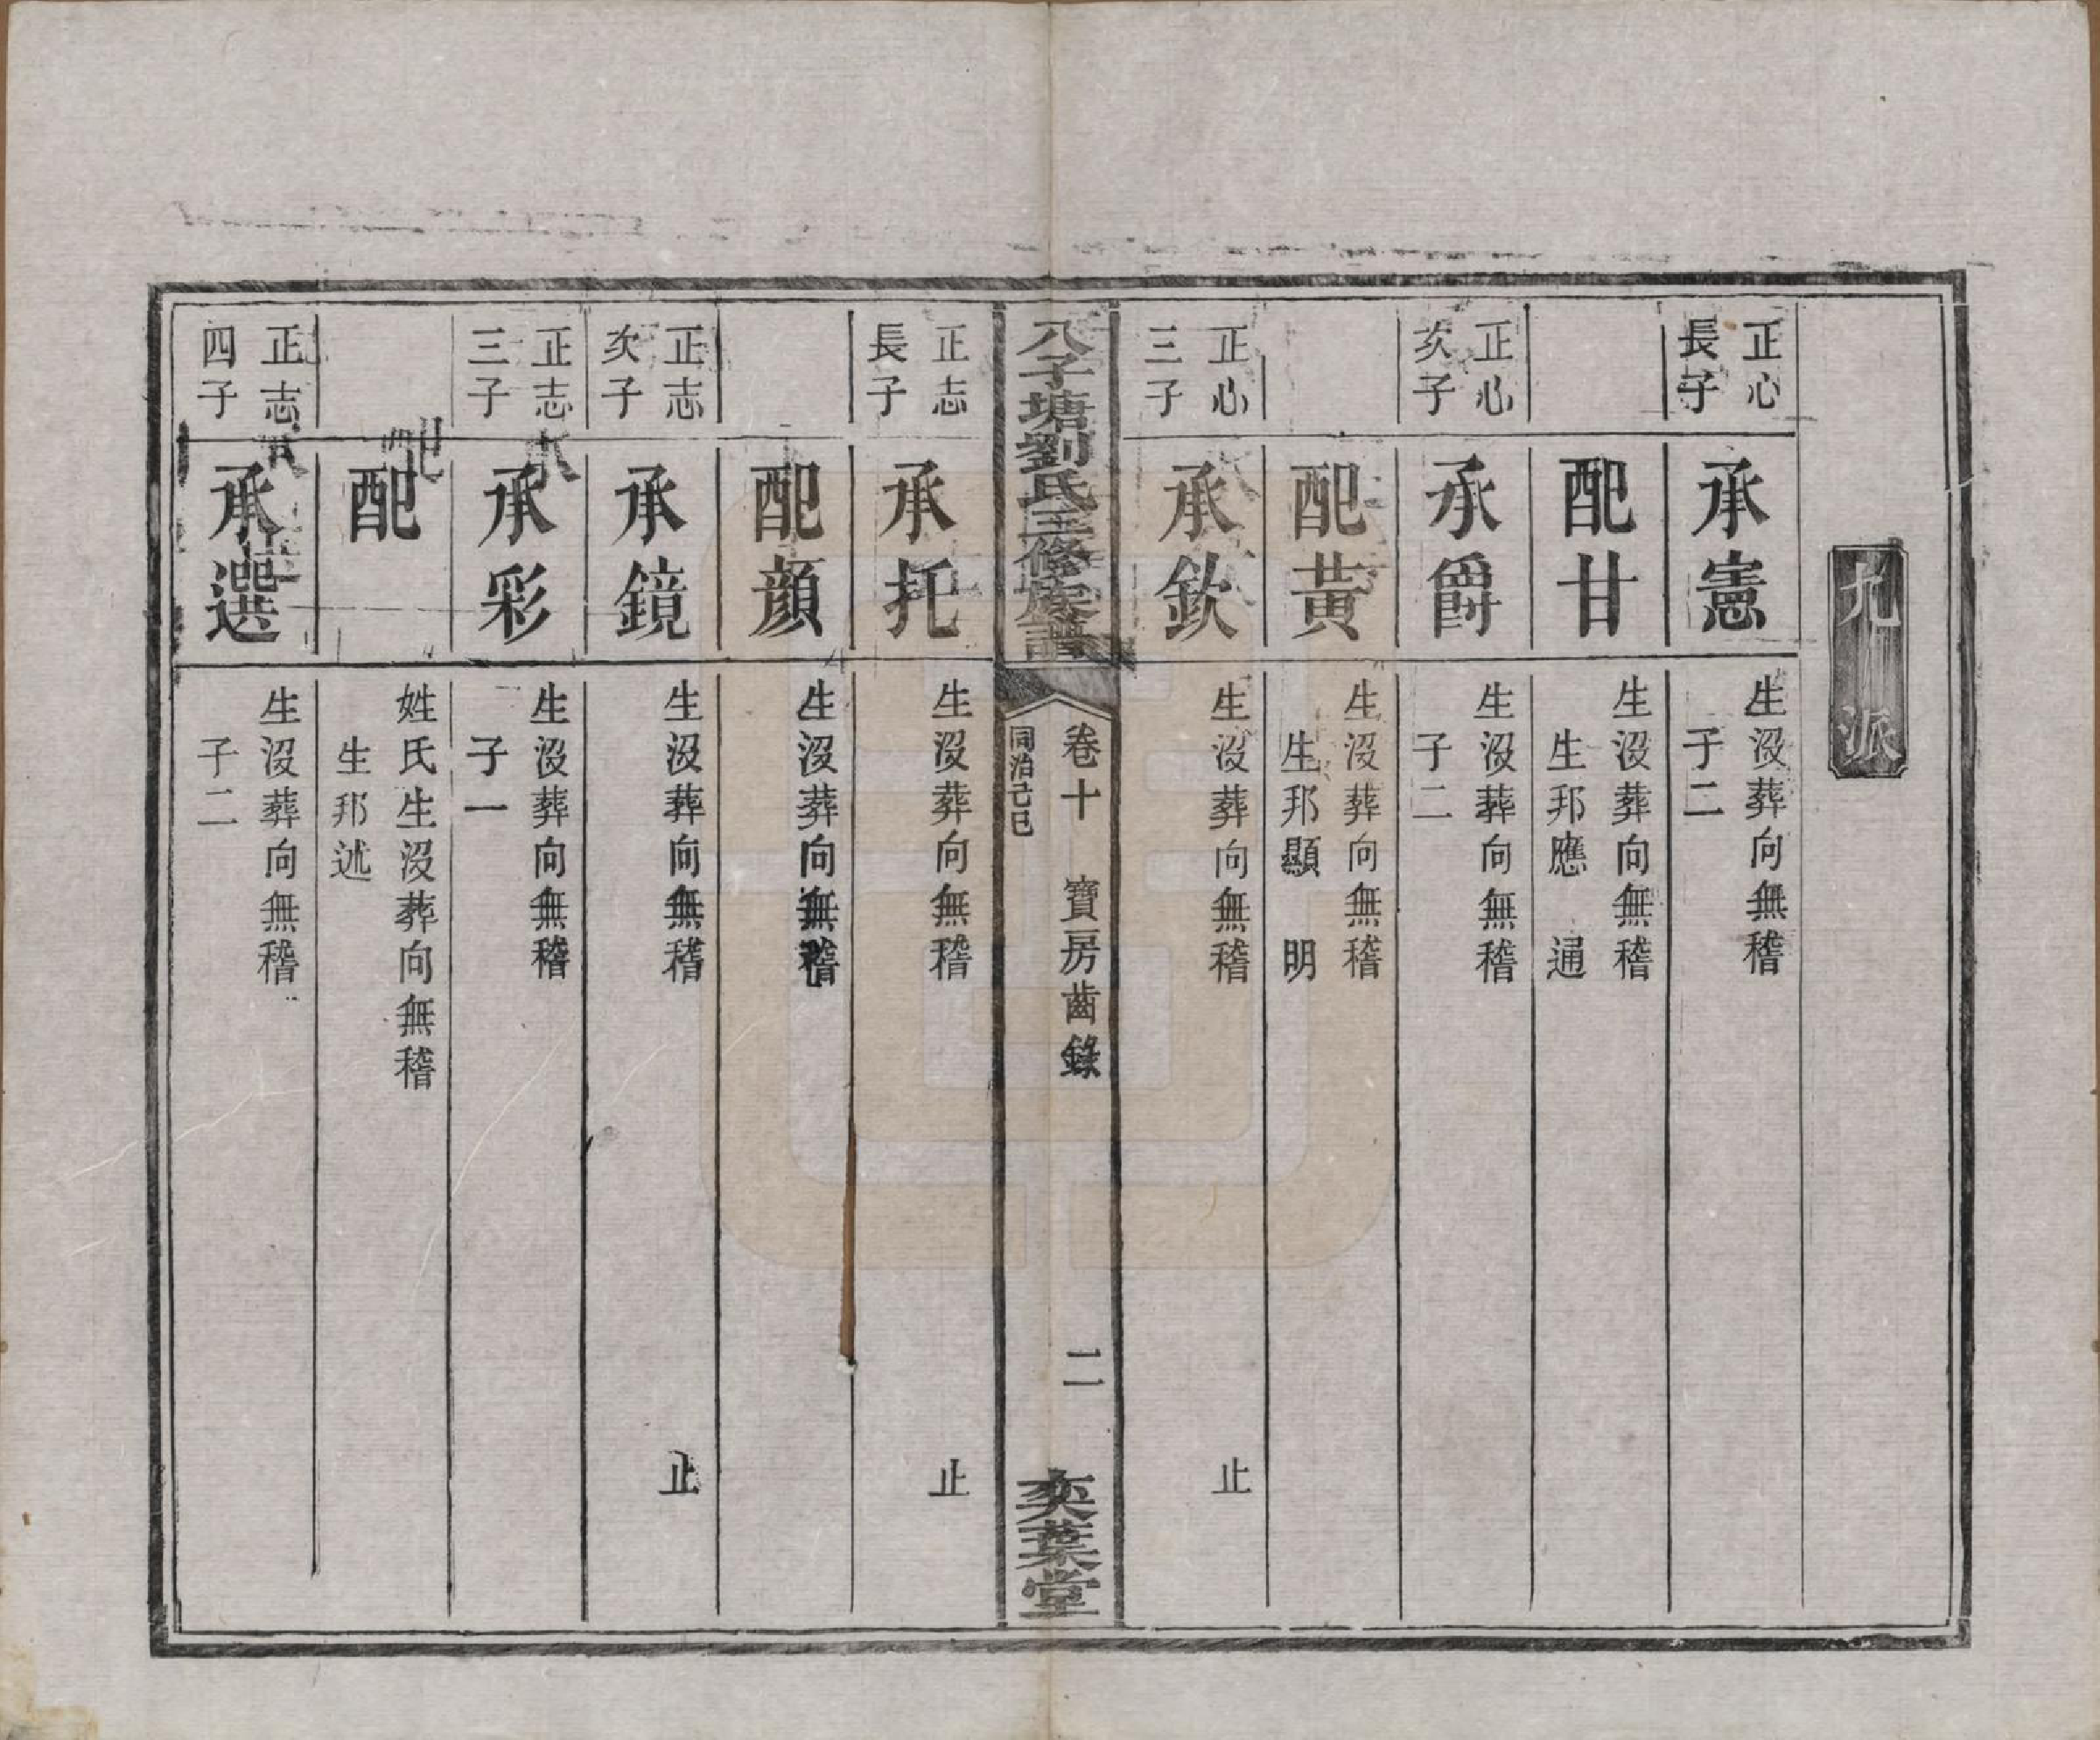 九派
正心
長子
承憲
生沒葬向無稽
子二
配甘
生沒葬向無稽
生邦應　通
正心
次子
承爵
生沒葬向無稽
子二
配黃
生沒葬向無稽
生邦顯　明
正心
三子
承欽
生沒葬向無稽　止
八子塘劉氏三修族譜
卷十　寶房齒錄　二
同治己巳
奕葉堂
正志
長子
承托
生沒葬向無稽　止
配顏
生沒葬向無稽
正志
次子
承鏡
生沒葬向無稽　止
正志
三子
承彩
生沒葬向無稽
子一
配
姓氏生沒葬向無稽
生邦述
正志
四子
承選
生沒葬向無稽
子二